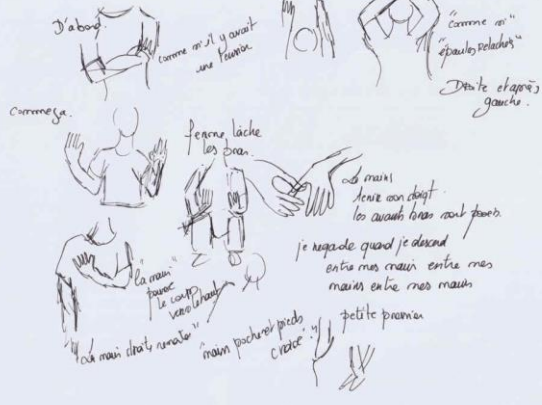 D'abord
comme si il y avait
une tension
"comme si"
"épaules relachées"
Droite et après
gauche.
comme ça.
femme lâche
les bras.
La mains
tenir mon doigt
les avants bras sont posés.
je regarde quand je descend
entre mes main entre mes
mains entre mes mains
"la main"
pousse
le corps
vers le haut
"la main droite remonte"
"main poche et pieds
croisé"
petite premier